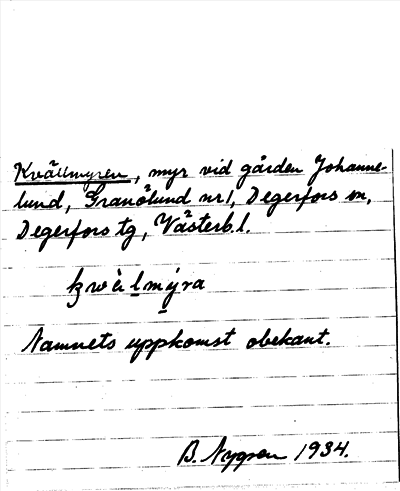 Kvällmyren, myr vid gården Johanne-
lund, Granölund nr 1, Degerfors sn,
Degerfors tg, Västerb.l.
Namnets uppkomst obekant.
B. Nygren 1934.